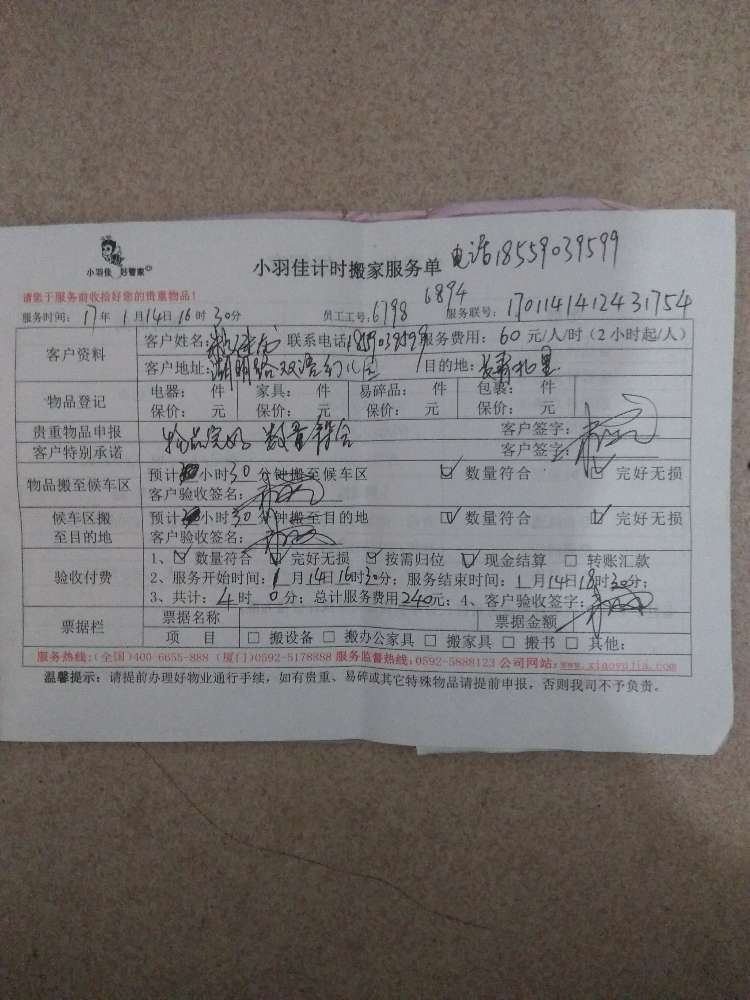 小羽佳 好管家
小羽佳计时搬家服务单 电话18559039599
请您于服务前收拾好您的贵重物品！
服务时间：17年1月14日16时30分 员工工号：6798 6894 服务联号：1701141412431754
客户资料 客户姓名： 联系电话18559039599服务费用：60元/人/时（2小时起/人）
客户地址：湖明路双语幼儿园 目的地：长青北里
物品登记 电器： 件 家具： 件 易碎品： 件 包裹： 件
保价： 元 保价： 元 保价： 元 保价： 元
贵重物品申报 物品完好 数量符合 客户签字：
客户特别承诺 客户签字：
物品搬至候车区 预计 小时30分钟搬至候车区 ☑ 数量符合 ☑ 完好无损
客户验收签名：
候车区搬至目的地 预计 小时30分钟搬至目的地 ☑ 数量符合 ☑ 完好无损
客户验收签名：
验收付费 1、☑ 数量符合 ☑ 完好无损 ☑ 按需归位 ☑ 现金结算 □ 转账汇款
2、服务开始时间：1月14日16时30分；服务结束时间：1月14日18时30分；
3、共计：4时0分；总计服务费用240元；4、客户验收签字：
票据栏 票据名称 票据金额
项 目 □ 搬设备 □ 搬办公家具 □ 搬家具 □ 搬书 □ 其他：
服务热线：(全国)400-6655-888 (厦门)0592-5178888 服务监督热线：0592-5888123 公司网站：www.xiaoyujia.com
温馨提示：请提前办理好物业通行手续，如有贵重、易碎或其它特殊物品请提前申报，否则我司不予负责。